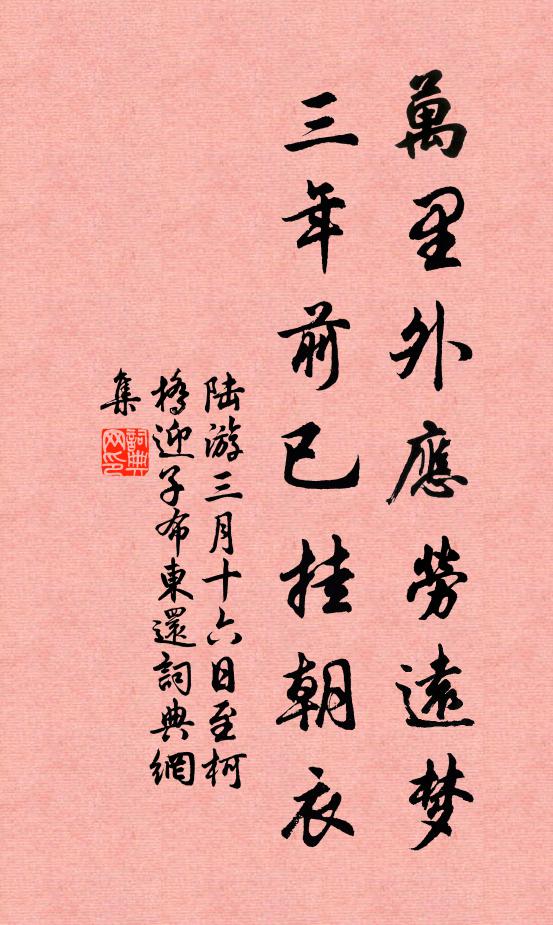 萬里外應勞遠梦
三年前已挂朝衣
陆游三月十六日至柯
橋迎子布東還詞典網
集
詞典网印